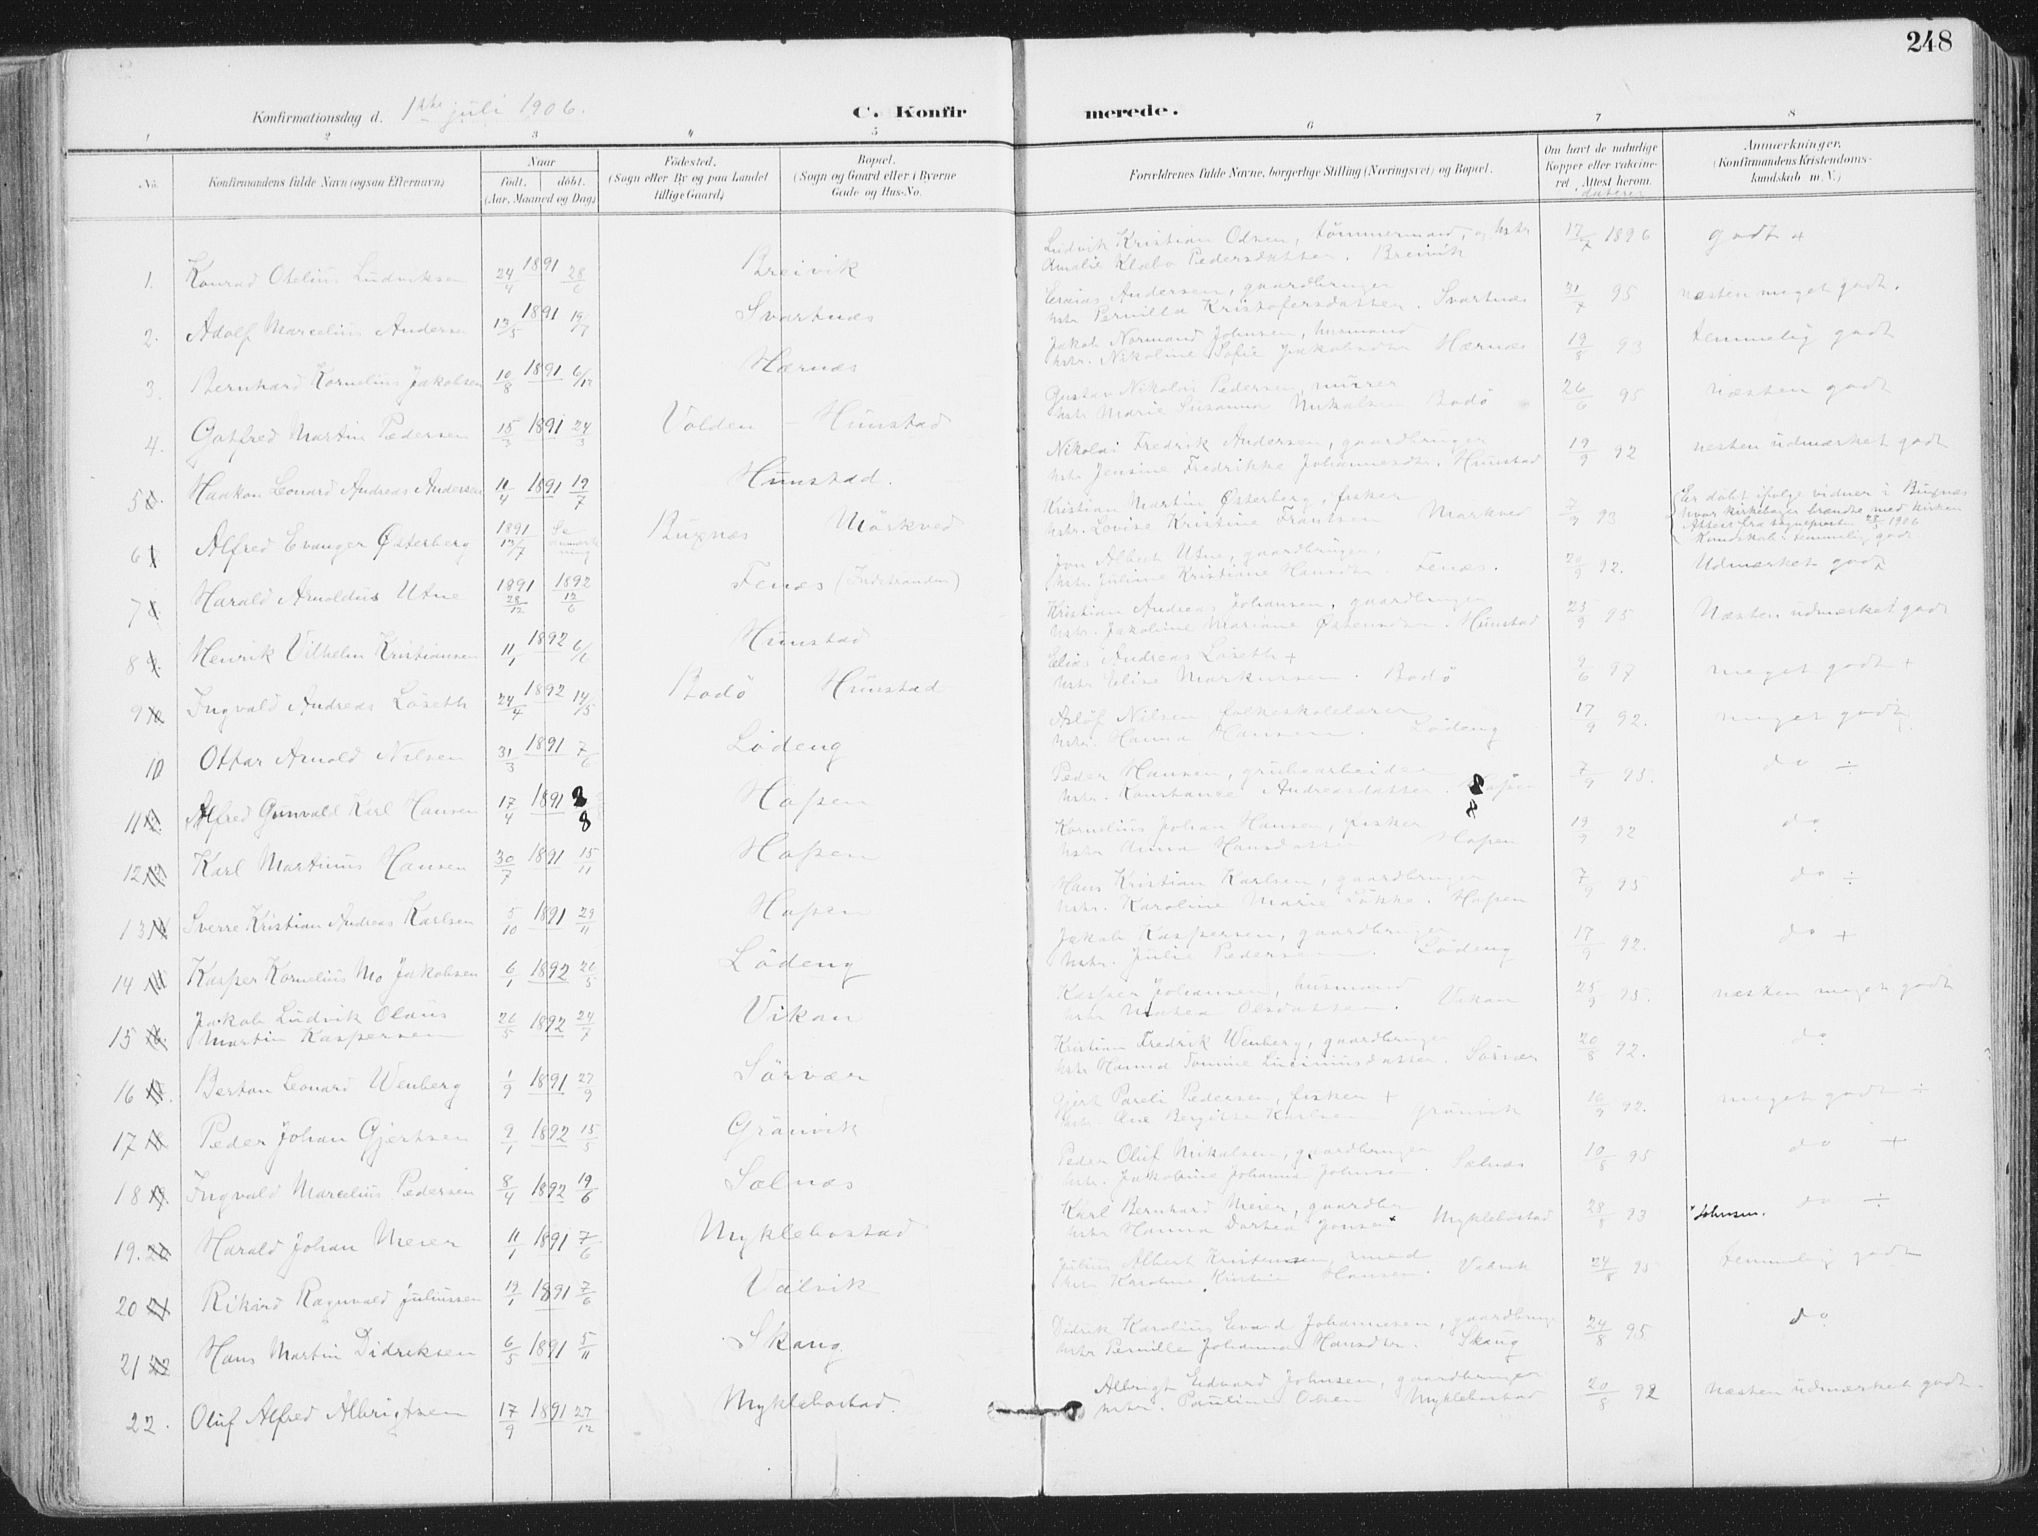 248
Konfirmationsdag d. 1ste juli 1906.
C. Konfirmerede.
1 2 3 4 5 6 7 8
No.
Konfirmandens fulde Navn (ogsaa Efternavn)
Naar
født. døbt.
(Aar, Maaned og Dag)
Fødested.
(Sogn eller By og paa Landet
tillige Gaard)
Bopæl.
(Sogn og Gaard eller i Byerne
Gade og Hus-No.
Forældrenes fulde Navne, borgerlige Stilling (Næringsvei) og Bopæl.
Om havt de naturlige
Kopper eller vaccine-
ret, Attest herom.
dateres
Anmærkninger.
(Konfirmandens Kristendoms-
kundskab m. V.)
Ludvik Kristian Odsen, tömmermand, og hstr
1. Konrad Otelius Ludviksen 24/4 1891 28/6 Breivik Amalie Klæbo Pedersdatter. Breivik 17/7 1896 godt +
Esaias Andersen, gaardbruger
2. Adolf Marcelius Andersen 13/5 1891 19/7 Svartnæs hstr Pernilla Kristofersdatter. Svartnæs 31/7 95 næsten meget godt.
Jakob Normand Johnsen, husmand
3. Bernhard Kornelius Jakobsen 10/8 1891 6/12 Hærnæs hstr. Nikoline Sofie Jakobsdtr Hærnæs 19/8 93 temmelig godt
Gustav Nikolai Pedersen, murer
4. Gotfred Martin Pedersen 15/3 1891 24/3 Volden - Hunstad hstr Marie Susanna Nikolsen Bodö 26/6 95 næsten godt
Nikolai Fredrik Andersen, gaardbruger
5 Haakon Leonard Andreas Andersen 11/4 1891 19/7 Hunstad. hstr Jensine Fredrikke Johannesdtr. Hunstad 19/9 92 næsten udmærket godt
Kristian Martin Østerberg, fisker
6 Alfred Evanger Østerberg 1891 13/7 Se anmærkning Buxnæs Mörkved hstr. Lovise Kristine Frantsen Markved 7/7 93 Er döbt ifölge vidner i Buxnæs
hvor kirkeböger brændte med kirken
Attest fra sognepresten 1906
Kundskab: temmelig godt
Jon Albert Utne, gaardbruger,
7 Harald Arnoldus Utne 1891 28/12 1892 12/6 Fenæs (Indstranden) hstr. Juliane Kristiane Hansdtr. Fenæs. 20/9 92. Udmærket godt
Kristian Andreas Johansen, gaardbruger
8 Henrik Vilhelm Kristiansen 11/1 1892 6/6 Hunstad hstr. Jakobine Mariane Östensdtr. Hunstad 25/9 95 Næsten udmærket godt
Elias Andreas Löseth +
9 Ingvald Andreas Löseth 24/4 1892 14/5 Bodö Hunstad hstr Elise Markussen. Bodö 9/6 97 meget godt +
Aslöf Nilsen folkeskolelærer
10 Ottar Arnold Nilsen 31/3 1891 7/6 Lödeng hstr. Hanna Hansen. Lödeng 17/9 92. meget godt
Peder Hansen, grubearbeider
11 Alfred Gunvald Karl Hansen 17/4 1891 2/8 Hopen hstr. Konstance Andreasdatter. Hopen 7/9 95. do ÷
Kornelius Johan Hansen, fisker
12 Karl Martinus Hansen 30/7 1891 15/11 Hopen hstr Anna Hansdatter Hopen 19/9 92 do
Hans Kristian Karlsen, gaardbruger
13 Sverre Kristian Andreas Karlsen 5/10 1891 29/11 Hopen hstr. Karoline Marie Lökke. Hopen 7/9 95 do ÷
Jakob Kaspersen, gaardbruger
14 Kasper Kornelius Mo Jakobsen 6/1 1892 26/5 Lödeng hstr. Julie Pedersen. Lödeng 17/9 92. do +
Kasper Johansen, husmand
15 Jakob Ludvik Olaus
Martin Kaspersen 26/5 1892 24/7 Vikan hstr Olsdatter. Vikan 25/9 95. næsten meget godt
Kristian Fredrik Wenberg, gaardbruger
16 Bertan Leonard Wenberg 1/9 1891 27/9 Sörvær hstr Hanna Tomine Luciniusdatter. Sörvær 20/8 92. do
Gjert Pareli Pedersen, fisker +
17 Peder Johan Gjertsen 9/1 1892 15/5 Grönvik hstr. Ane Bergitte Karlsen Grönvik 16/9 92. meget godt ÷
Peder Oluf Nikolsen, gaardbruger
18 Ingvald Marcelius Pedersen 8/4 1892 19/6 Sælnæs hstr. Jakobine Johanna Johnsen. Sælnæs 10/8 95 do +
Karl Bernhard Meier, gaardbr
19. Harald Johan Meier 11/1 1891 7/6 Myklebostad hstr Hanna Dortea Jonsen Myklebostad 28/8 93 Johnsen. do ÷
Julius Albert Kristensen, smed
20 Rikard Ragnvald Juliussen 19/1 1891 7/6 Valvik hstr Karoline Kirstine Hansen. Valvik 24/8 95 temmelig godt
Didrik Karolius Evard Johannesen, gaardbruger
21 Hans Martin Didriksen 6/5 1891 5/11 Skaug hstr Pernille Johanna Hansdtr. Skaug 24/8 95 do
Albrigt Edvard Johnsen, gaardbruger
22. Oluf Alfred Albrigtsen 17/9 1891 27/12 Myklebostad. hstr. Pauline Olsen Myklebostad 20/8 92 næsten udmærket godt.